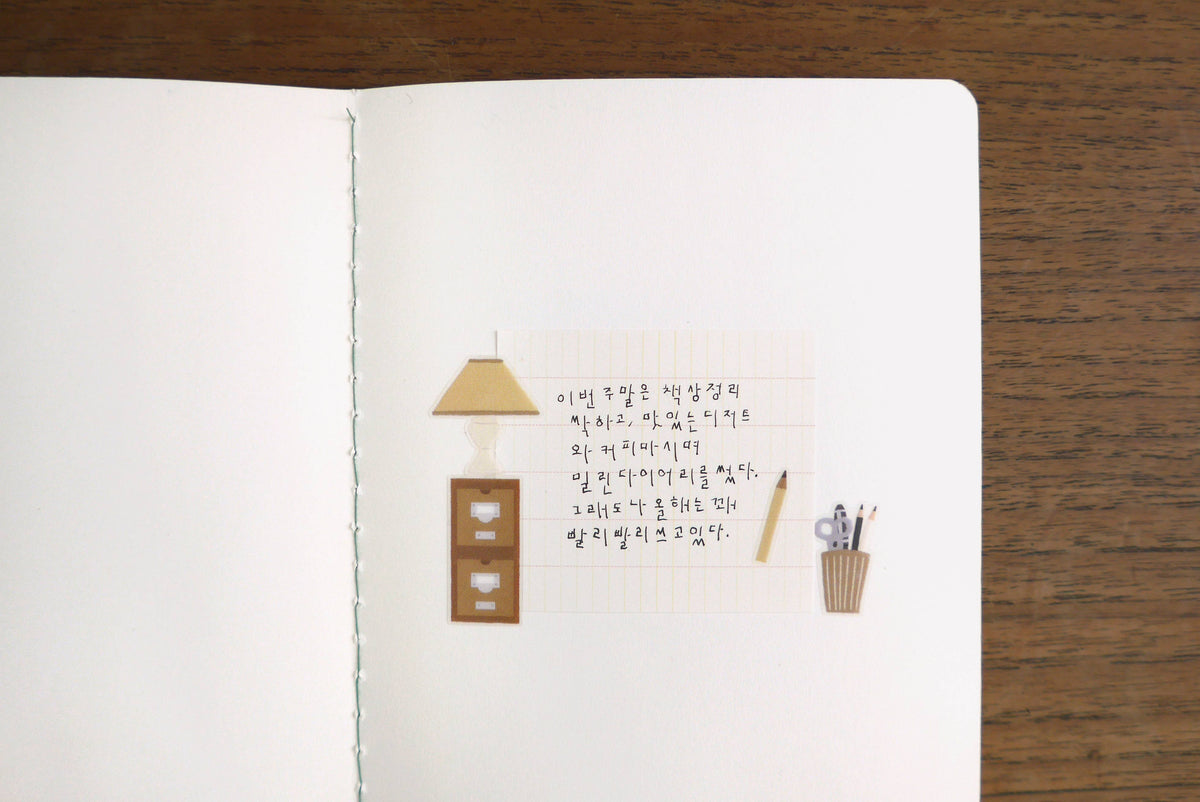 이번 주말은 책상정리
싹 하고, 맛있는 디저트
와 커피 마시며
밀린 다이어리를 썼다.
그래도 나 올해는 꽤
빨리빨리 쓰고있다.